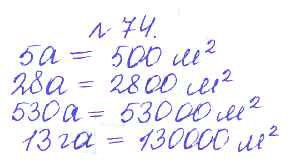 № 74.
5а = 500 м²
28а = 2800 м²
530а = 53000 м²
13га = 130000 м²